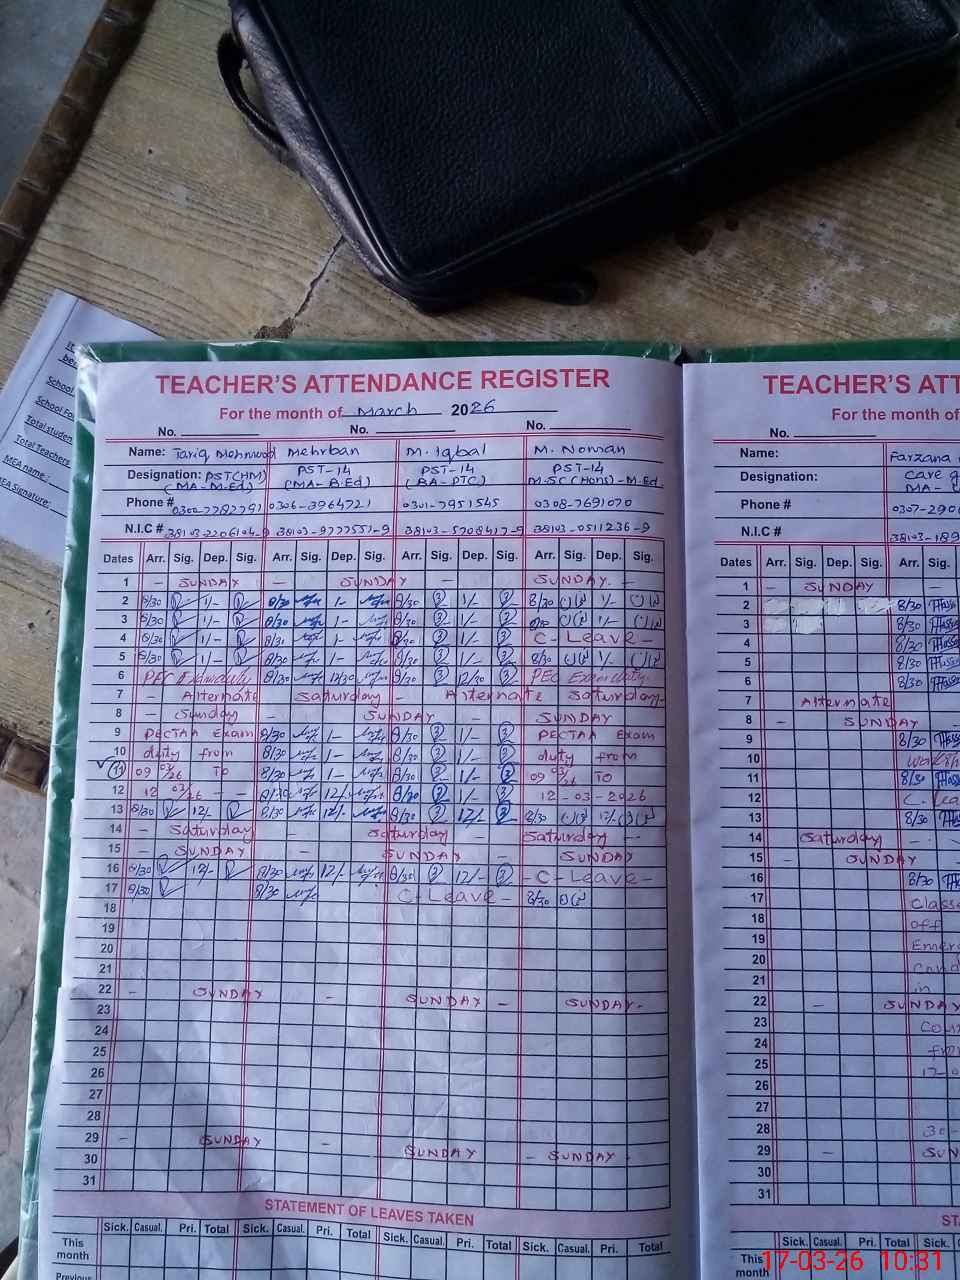 TEACHER'S ATTENDANCE REGISTER
For the month of March 2026
No. No. No.
Name: Tariq Mehmood Mehrban M. Iqbal M. Noman
Designation: PST(HM) PST-14 PST-14 PST-14
(MA-M-Ed) (MA-B.Ed) (BA-PTC) M-SC(Hons)-M-Ed
Phone # 0306-3964721 0301-7951545 0308-7691070
N.I.C # 38103-2206104-9 38103-9777551-9 38103-5708417-9 38103-0511236-9
Dates Arr. Sig. Dep. Sig. Arr. Sig. Dep. Sig. Arr. Sig. Dep. Sig. Arr. Sig. Dep. Sig.
1 - SUNDAY - SUNDAY - SUNDAY. -
2 8/30 1/- 8/30 1- 8/30 1/- 8/30 1/-
3 8/30 1/- 8/30 1- 8/30 1/- 1/-
4 8/30 1/- 8/31 1- 8/30 1/- C-Leave-
5 8/30 1/- 8/30 1- 8/30 1/- 8/30 1/-
6 PEC Exam duty 8/30 12/30 8/30 12/30 PEC Exam duty.
7 - Alternate Saturday - Alternate Saturday-
8 - Sunday - SUNDAY - SUNDAY
9 PECTAA Exam 8/30 1- 8/30 1/- PECTAA Exam
10 duty from 8/30 1- 8/30 1/- duty from
11 09 03/26 TO 8/30 1- 8/30 1/- 09 03/26 TO
12 12 03/26 - - 8/30 12/- 8/30 1/- 12-03-2026
13 8/30 12/- 8/30 12/- 8/30 12/- 8/30 12/-
14 - Saturday - Saturday - Saturday -
15 - SUNDAY - SUNDAY SUNDAY
16 8/30 12/- 8/30 12/- 8/30 12/- -C-Leave-
17 8/30 8/30 C-Leave- 8/30
18
19
20
21
22 - SUNDAY - SUNDAY - SUNDAY-
23
24
25
26
27
28
29 - SUNDAY -
30 SUNDAY - SUNDAY
31
STATEMENT OF LEAVES TAKEN
Sick. Casual. Pri. Total Sick. Casual. Pri. Total Sick. Casual. Pri. Total Sick. Casual. Pri. Total
This month
Previous
TEACHER'S ATT
For the month of
No.
Name: Farzana
Designation: Care g
MA-
Phone # 0307-290
N.I.C # 38103-189
Dates Arr. Sig. Dep. Sig. Arr. Sig.
1 - SUNDAY -
2 8/30
3 8/30
4 8/30
5 8/30
6 8/30
7 Alternate
8 - SUNDAY
9 8/30
10
11 8/30
12 C-Lea
13 8/30
14 Saturday -
15 - SUNDAY
16 8/30
17 Classe
18 off
19 Emerg
20 Cond
21 in
22 - SUNDAY
23
24
25
26
27
28
29 - SUN
30
31
Sick. Casual. Pri. Total Sick. C
This month
School
School
Total studen
Total Teachers
MEA name :
MEA Signature:
17-03-26 10:31